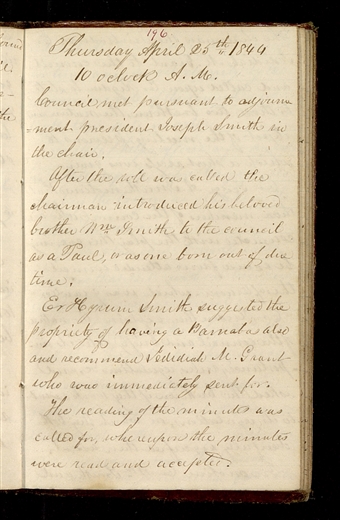 196
Thursday April 25th 1844
10 oclock A. M.
Council met pursuant to adjourn
=ment president Joseph Smith in
the chair.
After the roll was called the
chairman introduced his beloved
brother Wm Smith to the council
as a Paul, or as one born out of due
time;
Er Hyrum Smith suggested the
propriety of having a Barnabas also
and recommend Jedidiah M. Grant
who was immediately sent for.
The reading of the minutes was
called for, whereupon the minutes
were read and accepted.